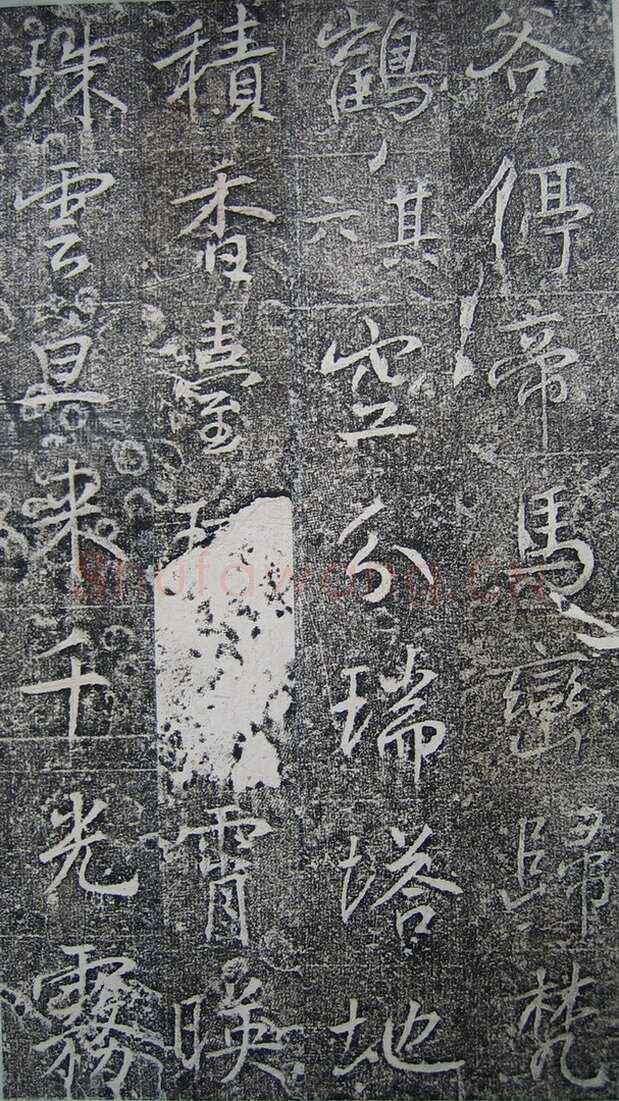 谷停帝馬巒歸梵
鶴其六空分瑞塔地
積香臺霄暎
珠雲旦来千光霧
Shufawang.CN